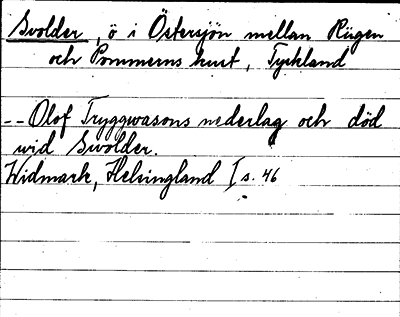 Svolder, ö i Östersjön mellan Rügen
och Pommerns kust, Tyskland
-- Olof Tryggwasons nederlag och död
wid Swolder.
Widmark, Helsingland I s. 46